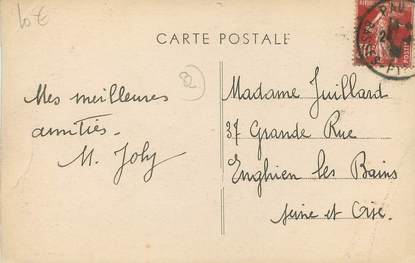 10 €
CARTE POSTALE
82
Mes meilleures
amitiés.
M. Joly
Madame Juillard
37 Grande Rue
Enghien les Bains
Seine et Oise.